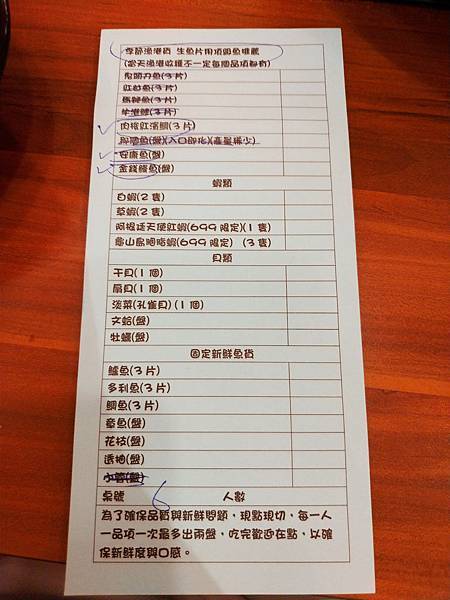 季節漁港貨 生魚片用頂級魚推薦
(當天漁港收穫不一定每個品項都有)
鬼頭刀魚(3片)
紅魽魚(3片)
馬鞭魚(3片)
牛港鰺(3片)
肉棯紅濱鯛(3片)
(盤)(入口即化)(產量稀少)
安康魚(盤)
金錢鱸魚(盤)
蝦類
白蝦(2隻)
草蝦(2隻)
阿根廷天使紅蝦(699限定)(1隻)
龜山島胭脂蝦(699限定) (3隻)
貝類
干貝(1個)
扇貝(1個)
淡菜(孔雀貝)(1個)
文蛤(盤)
牡蠣(盤)
固定新鮮魚貨
鱸魚(3片)
多利魚(3片)
鯛魚(3片)
章魚(盤)
花枝(盤)
透抽(盤)
小管(盤)
桌號 6 人數
為了確保品質與新鮮問題，現點現切，每一人
一品項一次最多出兩盤，吃完歡迎在點，以確
保新鮮度與口感。